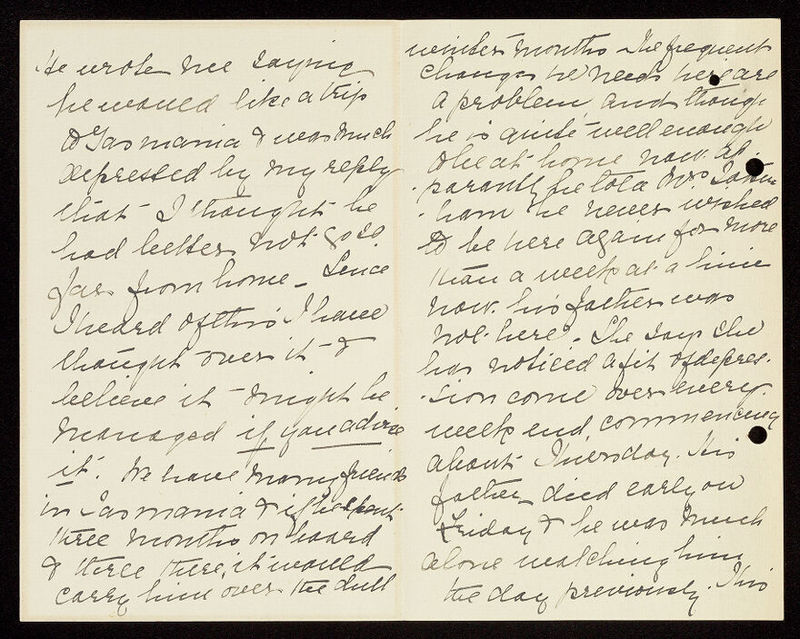 He wrote me saying
he would like a trip
to Tasmania & was much
depressed by my reply
that I thought he
had better not go so
far from home – Since
I heard of this I have
thought over it &
believe it might be
managed if you advise
it. We have many friends
in Tasmania & if he spent
three months on board
& three there, it would
carry him over the dull
winter months – The frequent
changes he needs here are
a problem and though
he is quite well enough
to be at home now. Ap-
parently he told Mrs
ham he never wished
to be here again for more
than a week at a time
now his father was
not here. She says she
has noticed a fit of depres-
sion come over every
week end, commencing
about Thursday. His
father died early on
Friday & he was much
alone watching him
the day previously. This